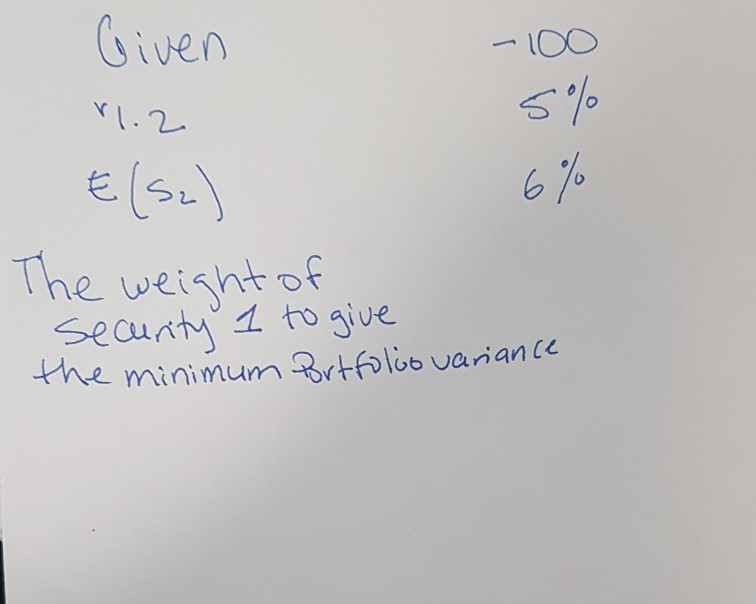 Given -100
r1.2 5%
E(S2) 6%
The weight of
security 1 to give
the minimum Portfolio variance